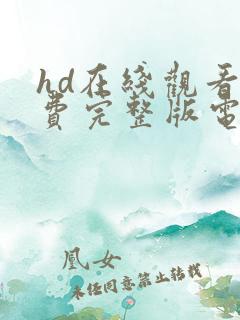 hd在綫觀看
費完整版電
凰女
未经同意禁止转载